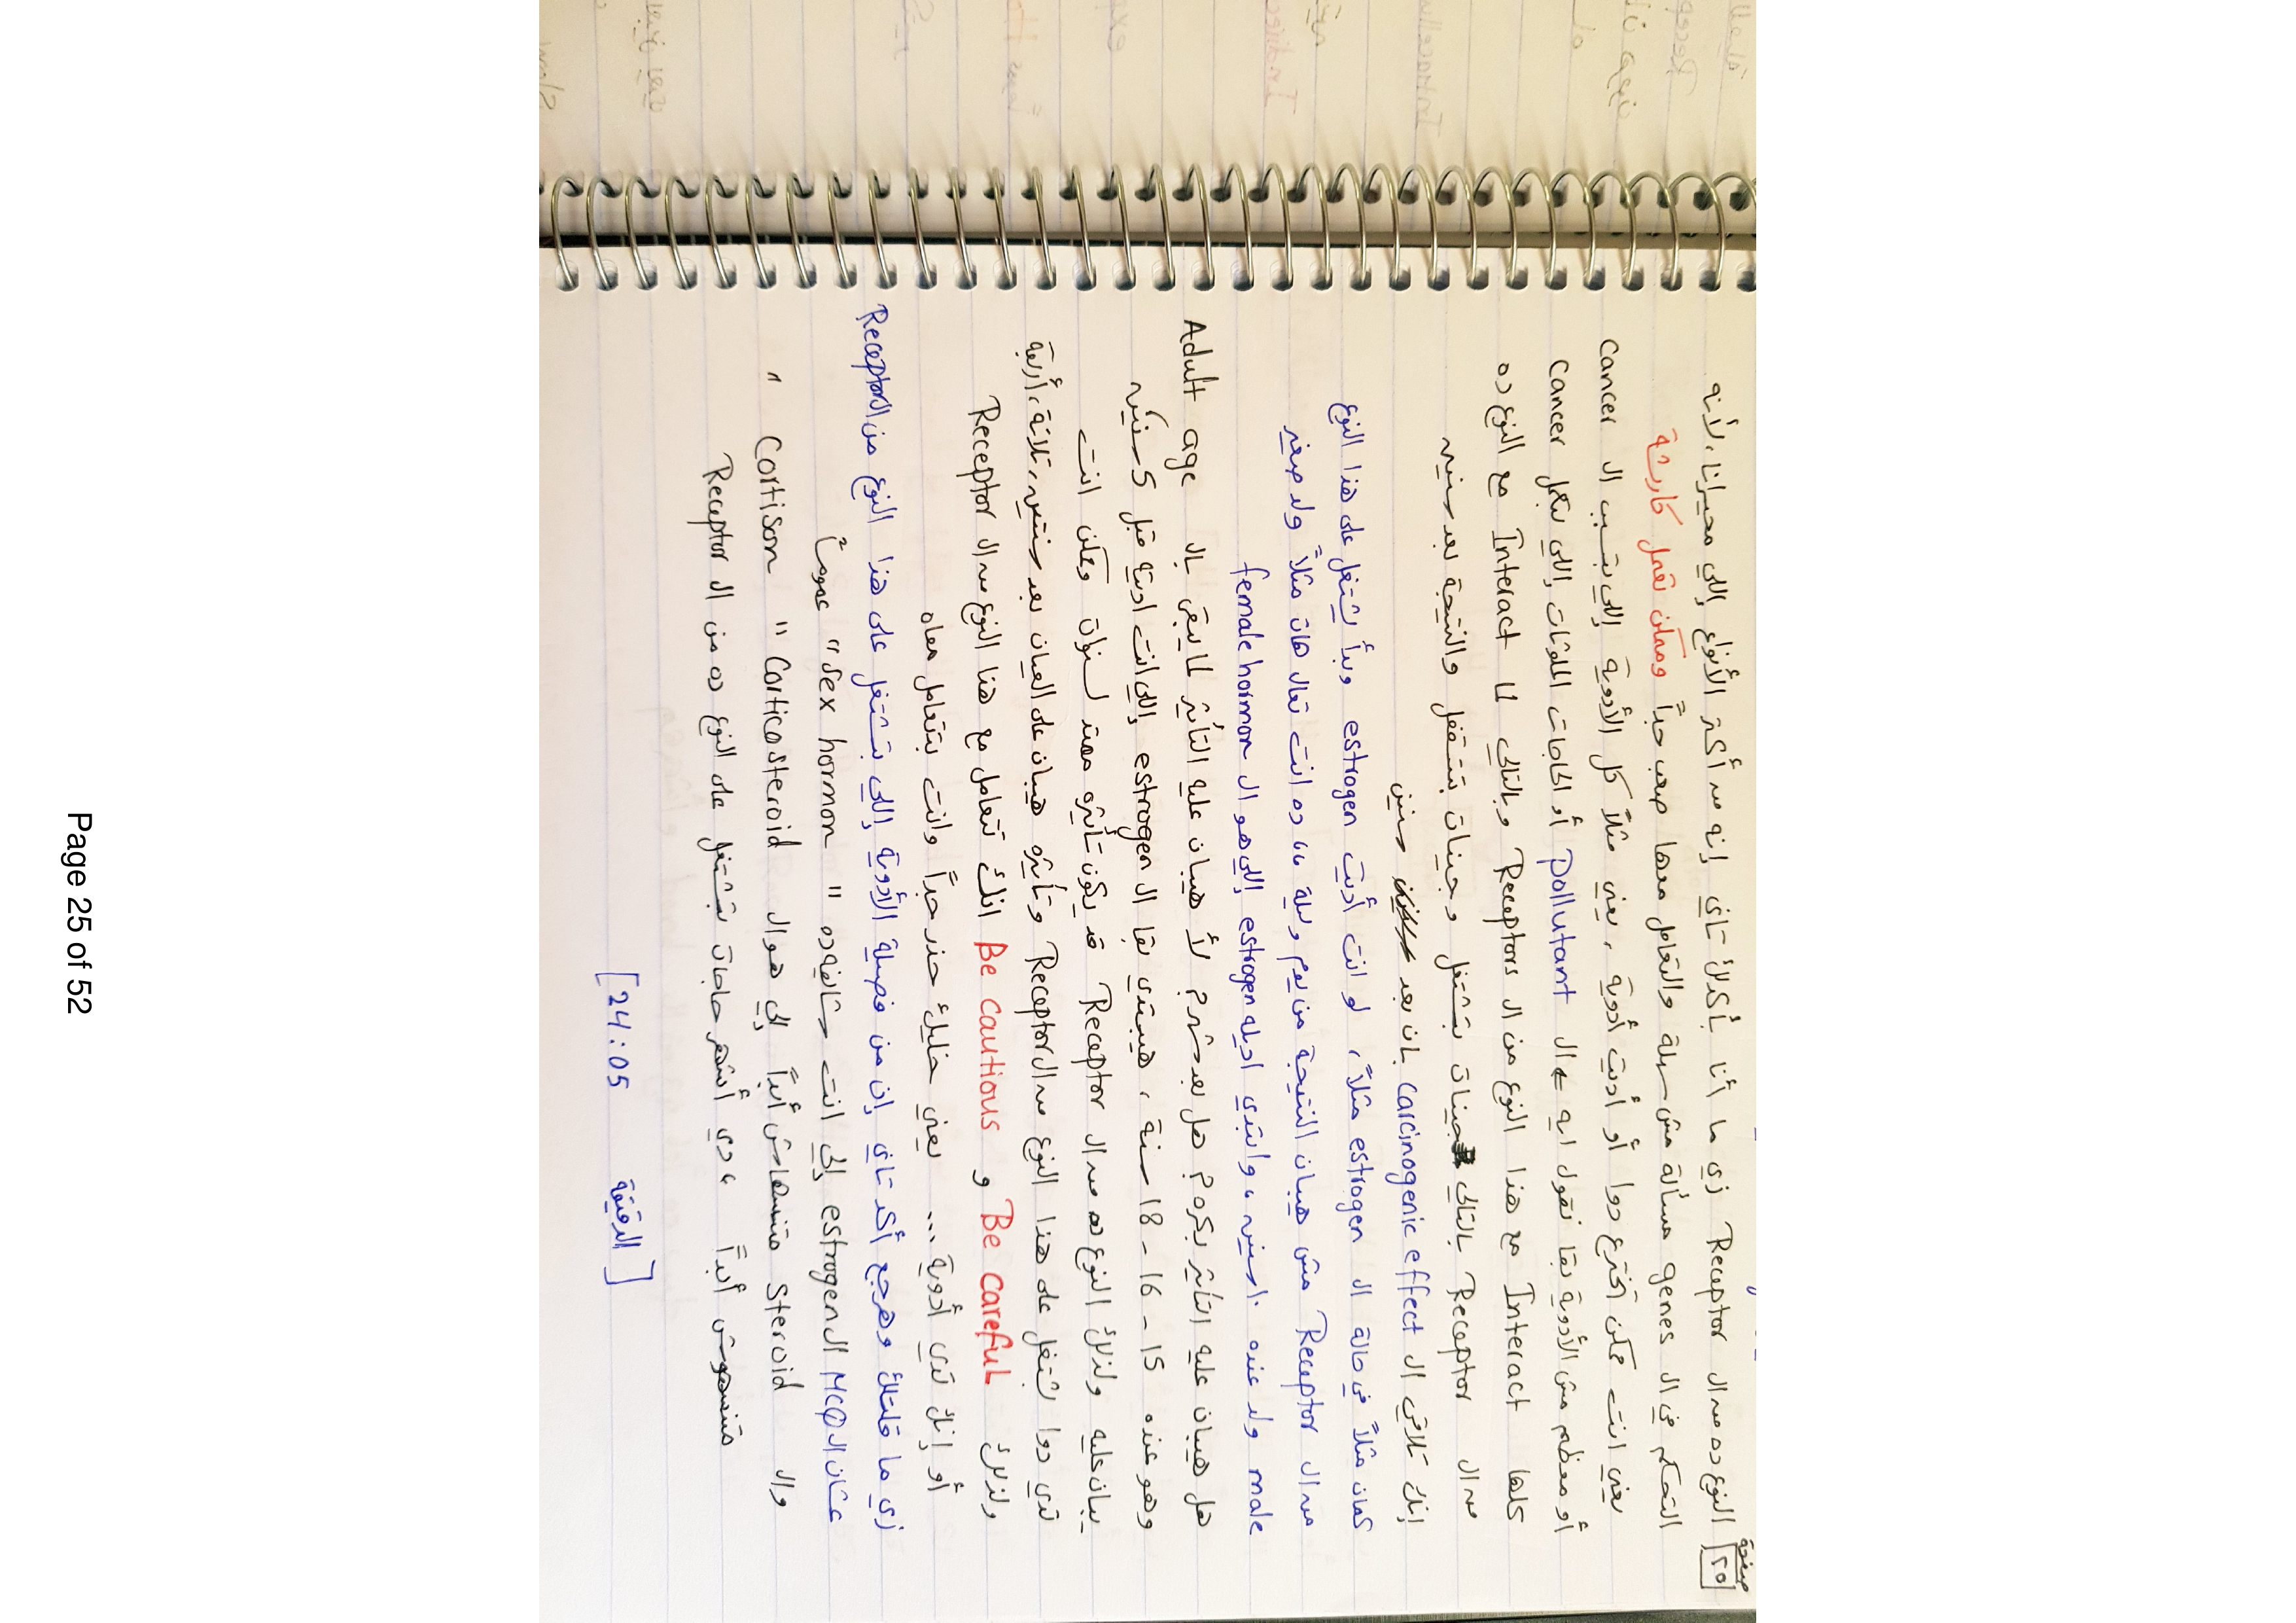 صفحة ٢٥
النوع ده من ال Receptor زي ما أنا بأكدلك تاني إنه من أكتر الأنواع إللي محيرانا، لأنه
التحكم في ال genes مسألة مش سهلة والتعامل معها صعب جداً وممكن تعمل كارثة
يعني انت ممكن تخترع دوا أو أديت أدوية، يعني مثلاً كل الأدوية إللي بتسبب ال cancer
أو معظم مش الأدوية بقا نقول ايه ال Pollutant أو الحاجات الملوثات إللي بتعمل cancer
كلها Interact مع هذا النوع من ال Receptors وبالتالي لما Interact مع النوع ده
من ال Receptor بالتالي جينات بتشتغل وجينات بتتقفل والنتيجة بعد سنين
إنك تلاقي ال carcinogenic effect بان بعد سنين
كمان مثلاً في حالة ال estrogen مثلاً، لو انت أديت estrogen وبدأ يشتغل على هذا النوع
من ال Receptor مش هيبان النتيجة من يوم وليلة ،، ده انت تعال هات مثلاً ولد صغير
male ولد عنده ١٠ سنين، وابتدي اديله estrogen إللي هو ال female hormon
هل هيبان عليه التأثير بكره؟ هل بعد شهر؟ لأ هيبان عليه التأثير لما يبقى بال Adult age
وهو عنده 15 - 16 - 18 سنة، هيبتدي بقا ال estrogen إللي انت اديته قبل كده سنين
يبان عليه ولذلك النوع ده من ال Receptor قد يكون تأثيره ممتد لسنوات وممكن انت
تدي دوا يشتغل على هذا النوع من ال Receptor وتأثيره هيبان على العيان بعد سنتين، تلاتة، أربعة
ولذلك Be careful و Be cautious انك تتعامل مع هذا النوع من ال Receptor
أو إنك تدي أدوية ... يعني خليك حذر جداً وانت بتتعامل معاه
زي ما قلتلك وهرجع أكد تاني إن من فصيلة الأدوية إللي بتشتغل على هذا النوع من ال Receptor
عشان ال MCQ ال estrogen إللي انت شايفه ده " sex hormon " عموماً
وال steroid متنسهاش أبداً إللي هو ال Corticosteroid " Cortison "
متنسهوش أبداً ،، دي أشهر حاجات بتشتغل على النوع ده من ال Receptor
[ الدقيقة 24:05 ]
Page 25 of 52